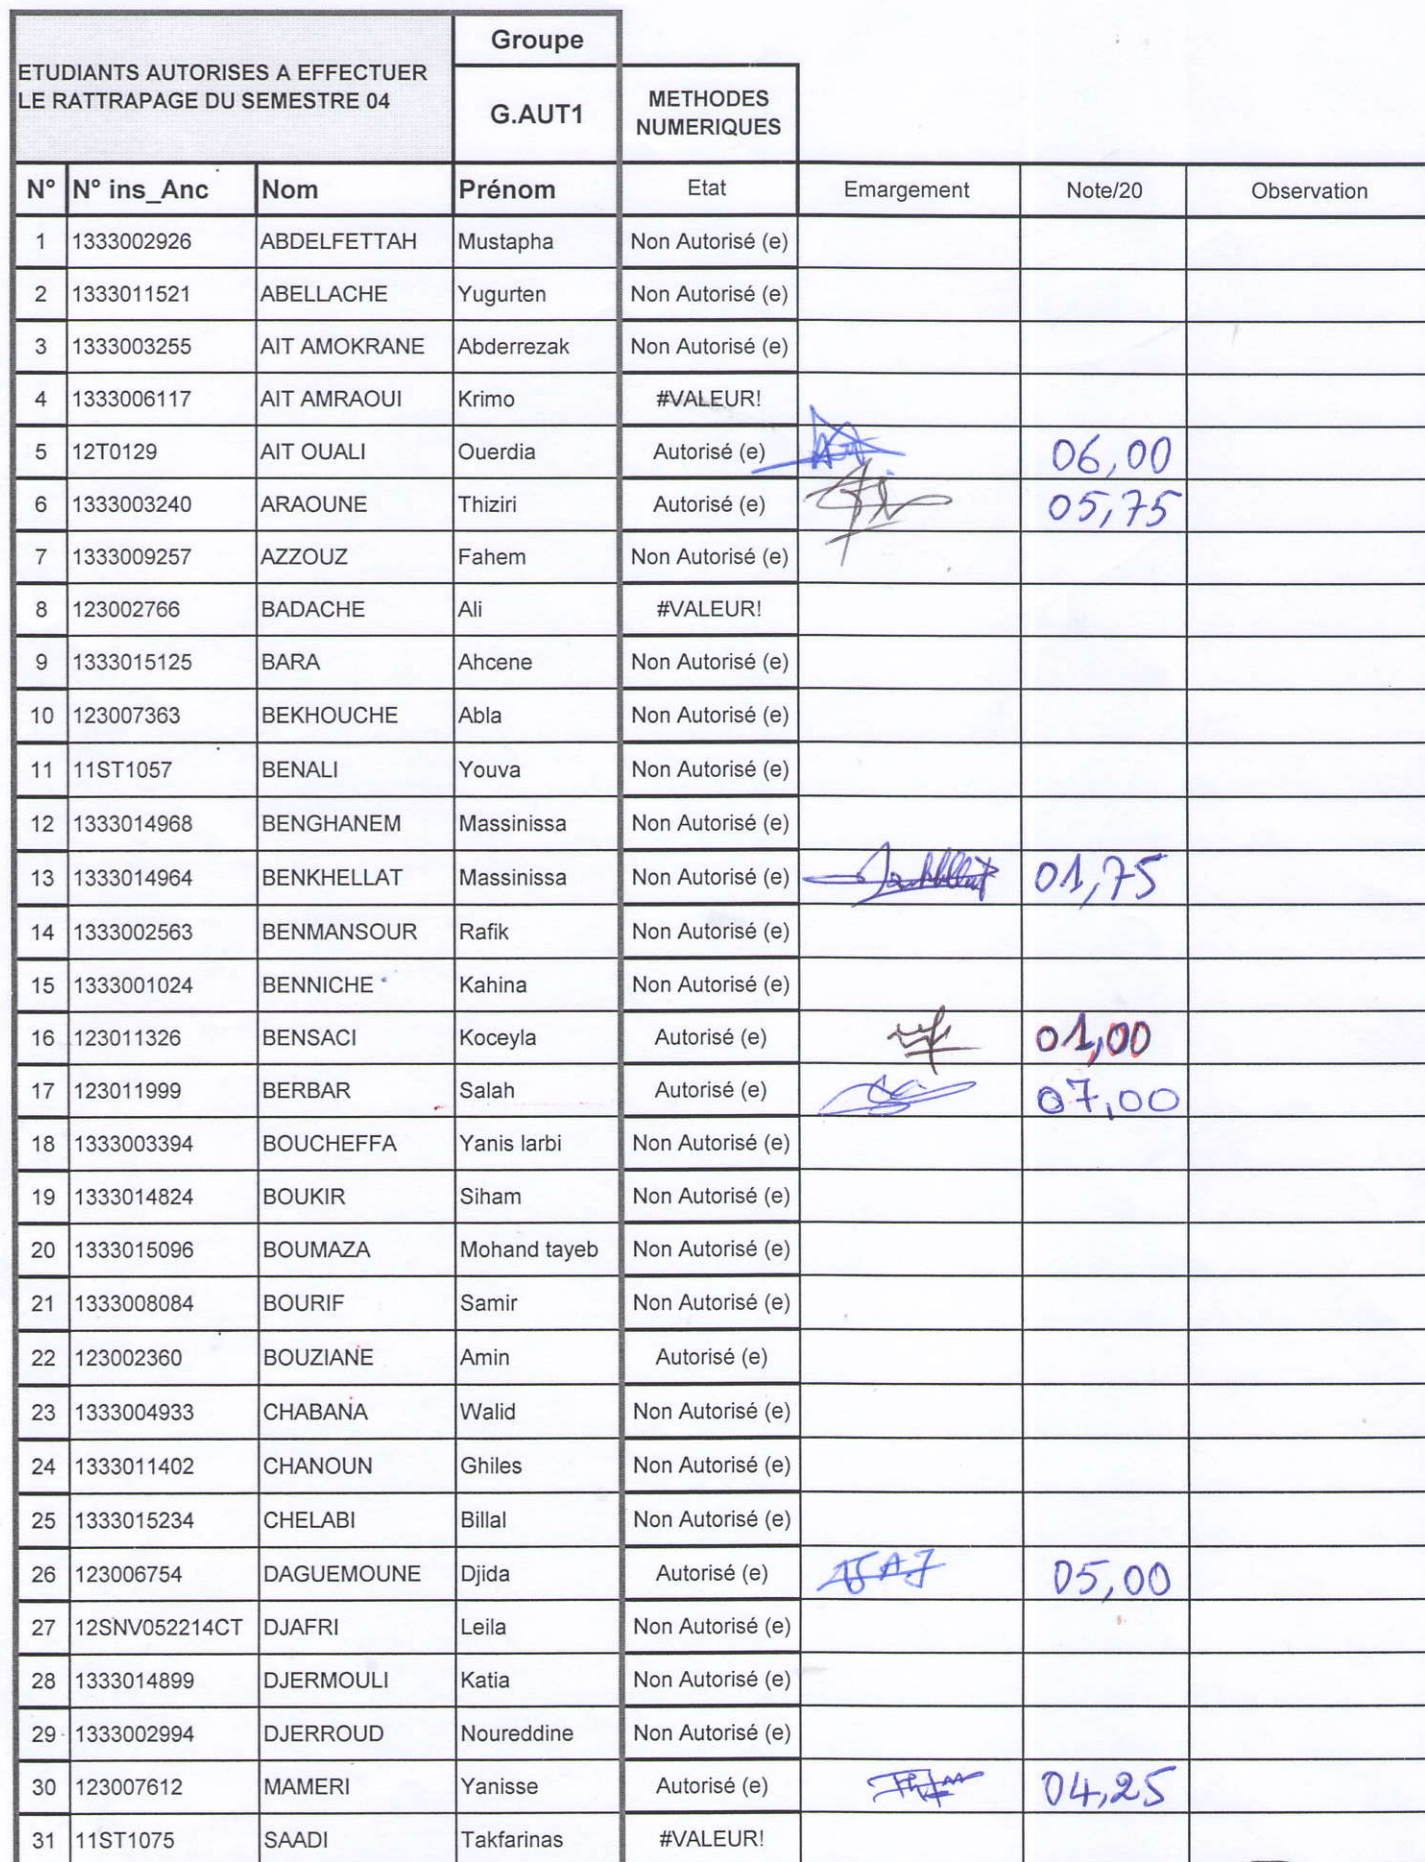 Groupe
ETUDIANTS AUTORISES A EFFECTUER
LE RATTRAPAGE DU SEMESTRE 04
G.AUT1
METHODES
NUMERIQUES
N° N° ins_Anc Nom Prénom Etat Emargement Note/20 Observation
1 1333002926 ABDELFETTAH Mustapha Non Autorisé (e)
2 1333011521 ABELLACHE Yugurten Non Autorisé (e)
3 1333003255 AIT AMOKRANE Abderrezak Non Autorisé (e)
4 1333006117 AIT AMRAOUI Krimo #VALEUR!
5 12T0129 AIT OUALI Ouerdia Autorisé (e) 06,00
6 1333003240 ARAOUNE Thiziri Autorisé (e) 05,75
7 1333009257 AZZOUZ Fahem Non Autorisé (e)
8 123002766 BADACHE Ali #VALEUR!
9 1333015125 BARA Ahcene Non Autorisé (e)
10 123007363 BEKHOUCHE Abla Non Autorisé (e)
11 11ST1057 BENALI Youva Non Autorisé (e)
12 1333014968 BENGHANEM Massinissa Non Autorisé (e)
13 1333014964 BENKHELLAT Massinissa Non Autorisé (e) 01,75
14 1333002563 BENMANSOUR Rafik Non Autorisé (e)
15 1333001024 BENNICHE Kahina Non Autorisé (e)
16 123011326 BENSACI Koceyla Autorisé (e) 01,00
17 123011999 BERBAR Salah Autorisé (e) 07,00
18 1333003394 BOUCHEFFA Yanis larbi Non Autorisé (e)
19 1333014824 BOUKIR Siham Non Autorisé (e)
20 1333015096 BOUMAZA Mohand tayeb Non Autorisé (e)
21 1333008084 BOURIF Samir Non Autorisé (e)
22 123002360 BOUZIANE Amin Autorisé (e)
23 1333004933 CHABANA Walid Non Autorisé (e)
24 1333011402 CHANOUN Ghiles Non Autorisé (e)
25 1333015234 CHELABI Billal Non Autorisé (e)
26 123006754 DAGUEMOUNE Djida Autorisé (e) 05,00
27 12SNV052214CT DJAFRI Leila Non Autorisé (e)
28 1333014899 DJERMOULI Katia Non Autorisé (e)
29 1333002994 DJERROUD Noureddine Non Autorisé (e)
30 123007612 MAMERI Yanisse Autorisé (e) 04,25
31 11ST1075 SAADI Takfarinas #VALEUR!